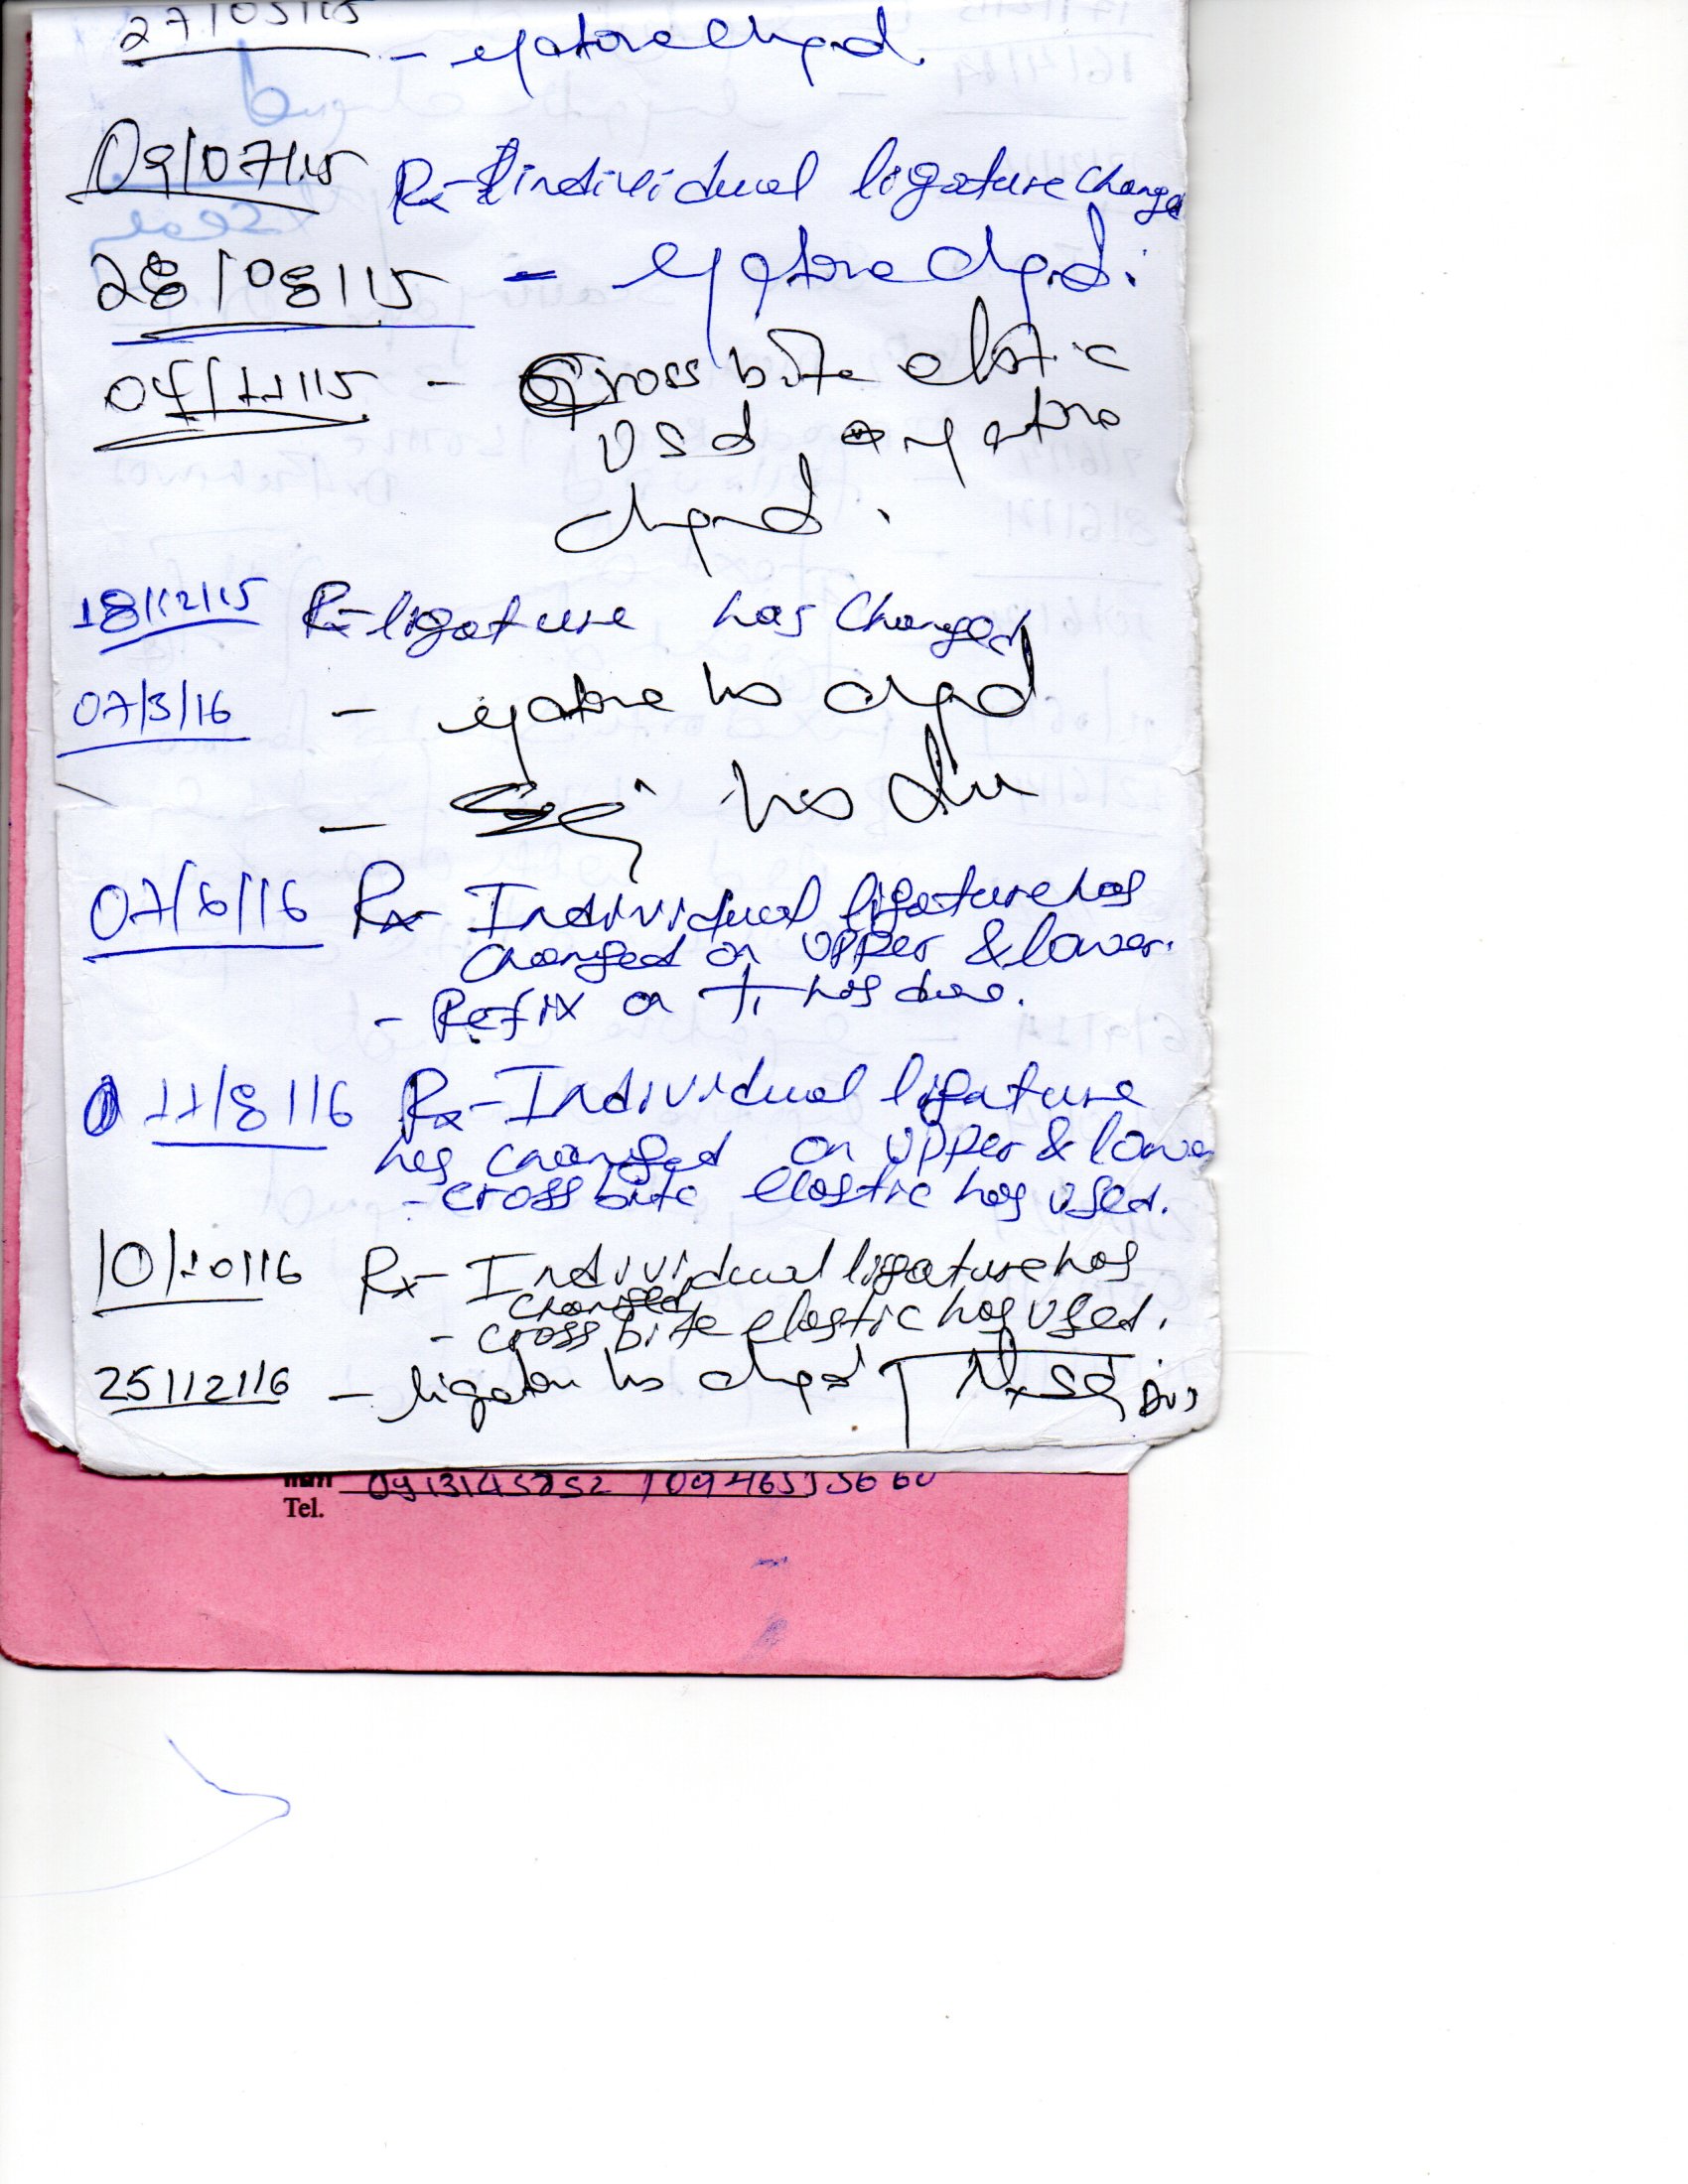 27/05/15 - ligature changed.
09/07/15 Rx - individual ligature change
28/08/15 - ligature changed.
04/11/15 - Cross bite elastic
used, ligature
changed.
18/12/15 Rx - ligature has Changed
07/3/16 - ligature has changed
- has
07/6/16 Rx - Individual ligature has
changed on upper & lower.
- Refix on has done.
11/8/16 Rx - Individual ligature
has changed on upper & lower
- cross bite elastic has used.
10/10/16 Rx - Individual ligature has
changed
- cross bite elastic has used.
25/12/16 - ligature has changed
Tel.